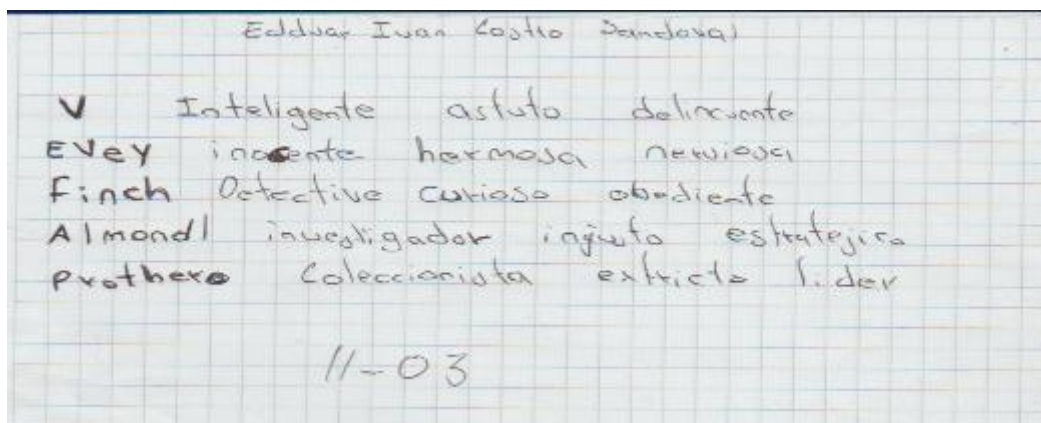 Edduar Ivan Castro Sandoval
V Inteligente astuto delincuente
EVey inocente hermosa nerviosa
Finch Detective curioso obediente
Almond investigador injusto estratejico
Prothero Coleccionista extricto lider
11-03